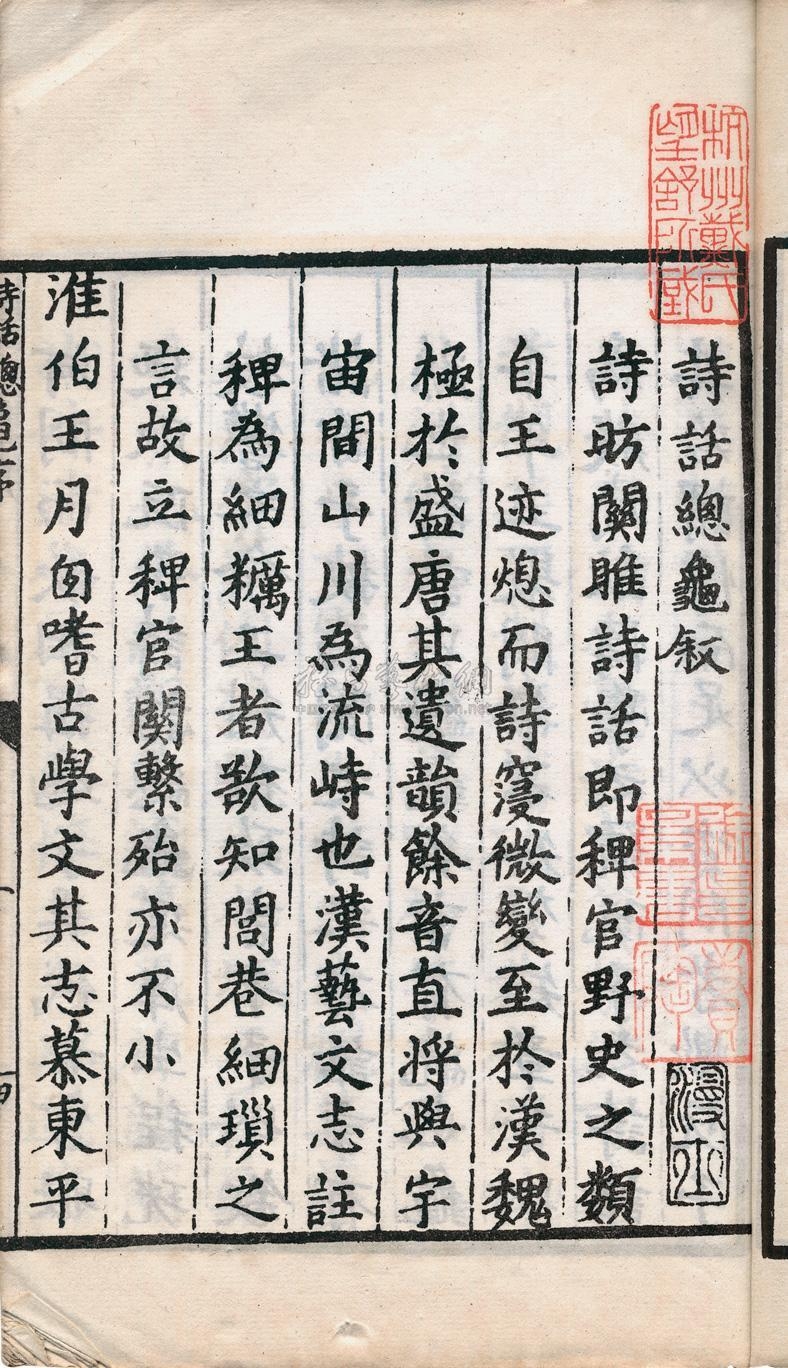 杭州戴氏
望舒所藏
詩話總龜叙
漫士
詩昉關雎詩話即稗官野史之類
自王迹熄而詩寖微變至於漢魏
極於盛唐其遺韻餘音直将與宇
宙間山川為流峙也漢藝文志註
稗為細糲王者欲知閭巷細瑣之
言故立稗官関繫殆亦不小
淮伯王月囱嗜古學文其志慕東平
詩話總龜序